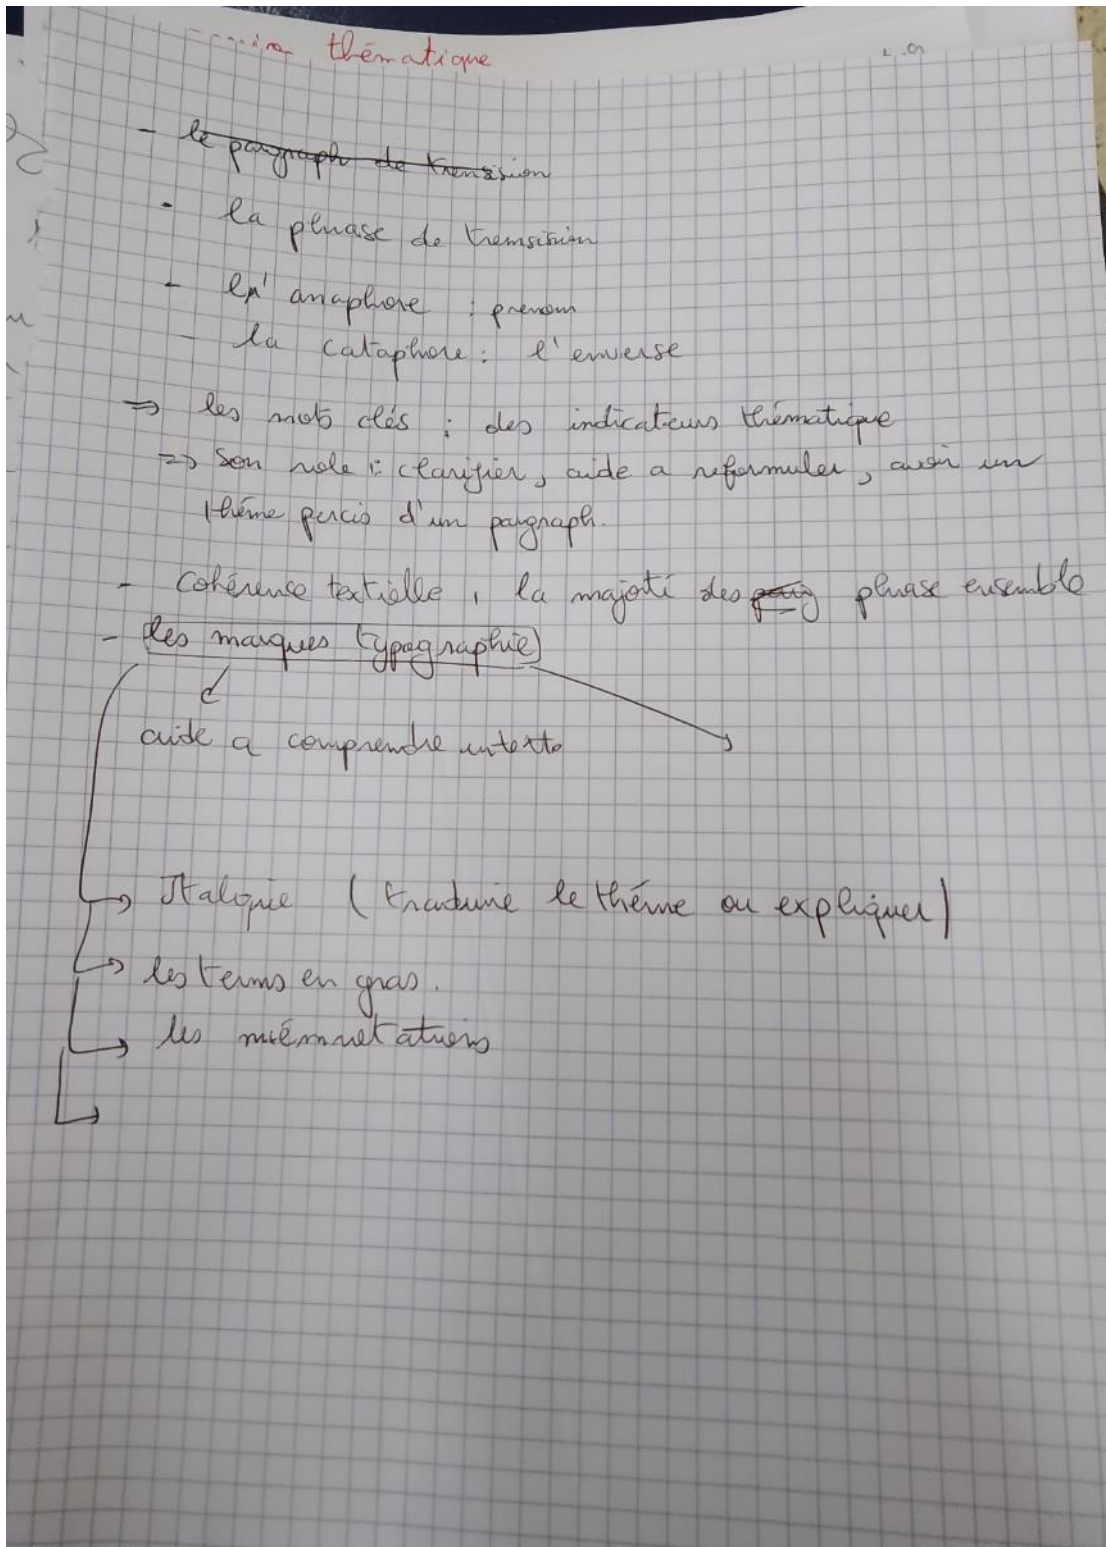 thématique
- le paragraph de transision
- la phrase de transision
- l'anaphore : prenom
- la cataphore : l'enverse
=> les mots clés : des indicateurs thématique
=> Son role : clarifier, aide a reformuler, avoir un
théme percis d'un pargraph.
- Cohérense textielle, la majoti des phrase ensemble
- les marques typographie
aide a comprendre un texte
Italquie ( traduire le théme ou expliquer)
les terms en gras.
les